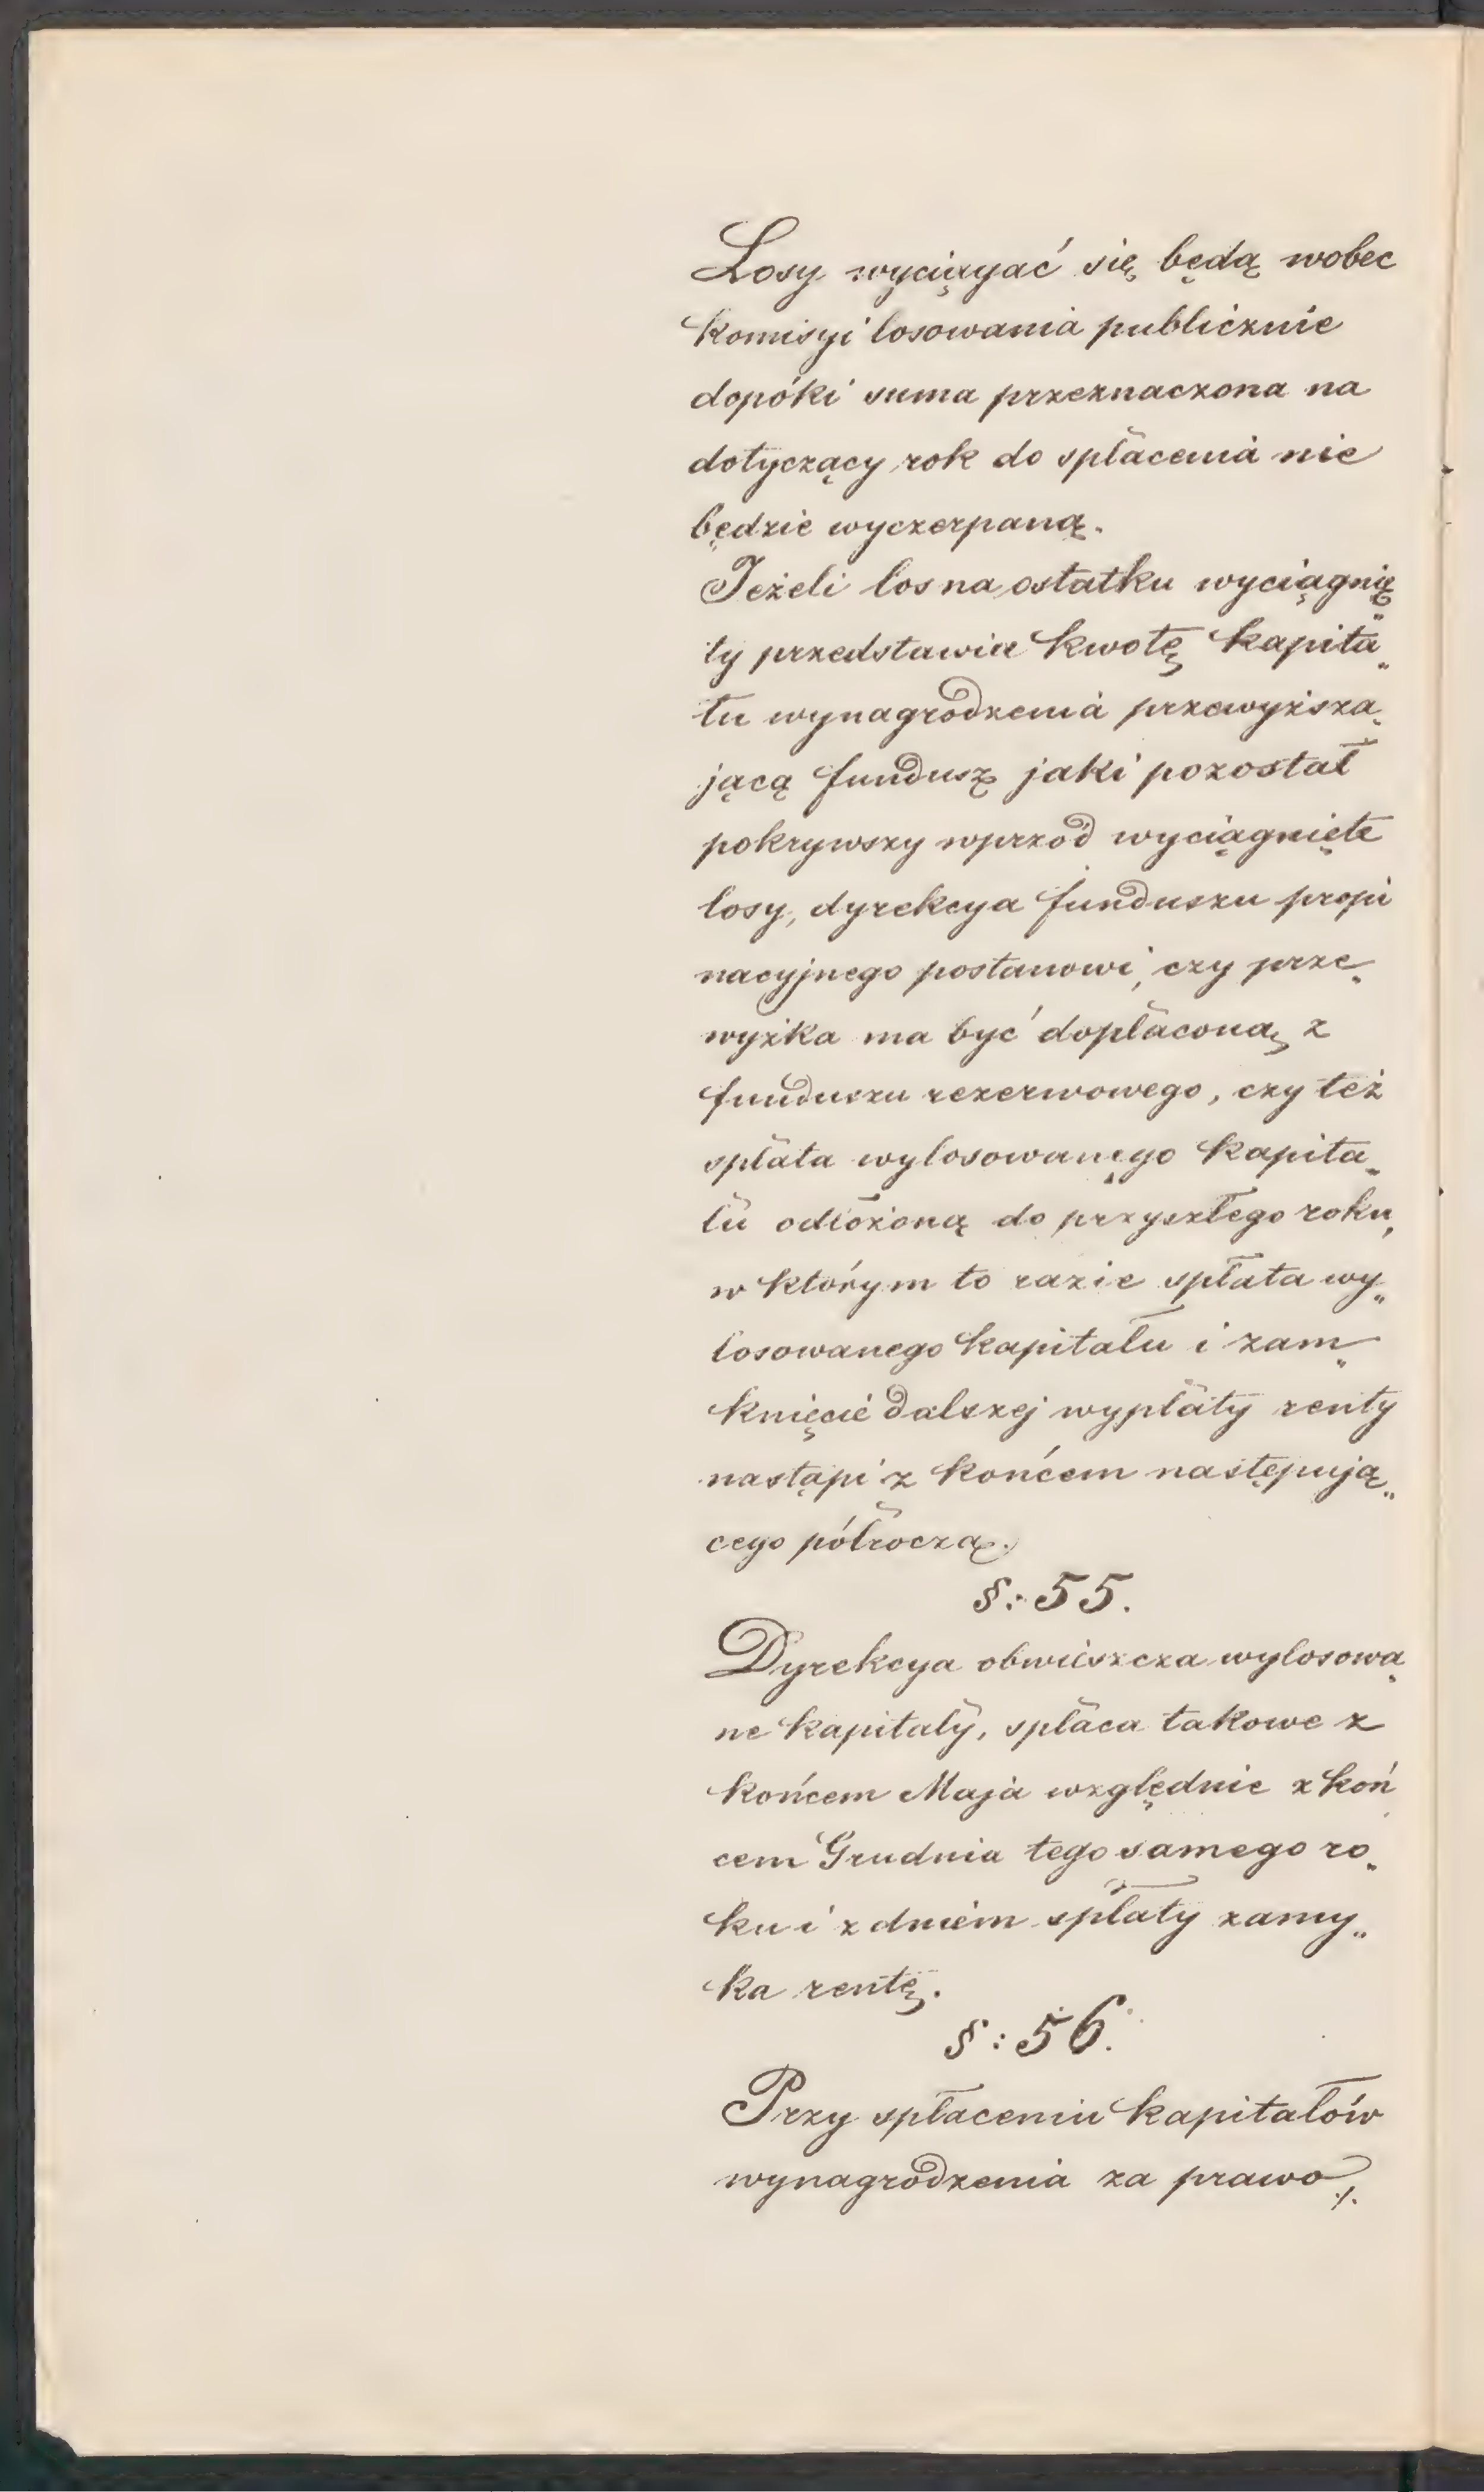 Losy wyciągać się będą wobec
Komisyi losowania publicznie
dopóki suma przeznaczona na
dotyczący rok do spłacenia nie
będzie wyczerpaną.
Jeżeli los na ostatku wyciągnię„
ty przedstawia kwotę kapita„
łu wynagrodzenia przewyższa„
jącą fundusz jaki pozostał
pokrywszy wprzód wyciągnięte
losy, dyrekcya funduszu propi
nacyjnego postanowi, czy prze„
wyżka ma być dopłaconą z
funduszu rezerwowego, czy też
spłata wylosowanego kapita„
łu odłożoną do przyszłego roku,
w którym to razie spłata wy„
losowanego kapitału i zam„
knięcie dalszej wypłaty renty
nastąpi z końcem następują„
cego półrocza.
§: 55.
Dyrekcya obwieszcza wylosowa„
ne kapitały, spłaca takowe z
końcem Maja względnie z koń
cem Grudnia tego samego ro„
ku i z dniem spłaty zamy„
ka rentę.
§: 56.
Przy spłaceniu kapitałów
wynagrodzenia za prawo ./.